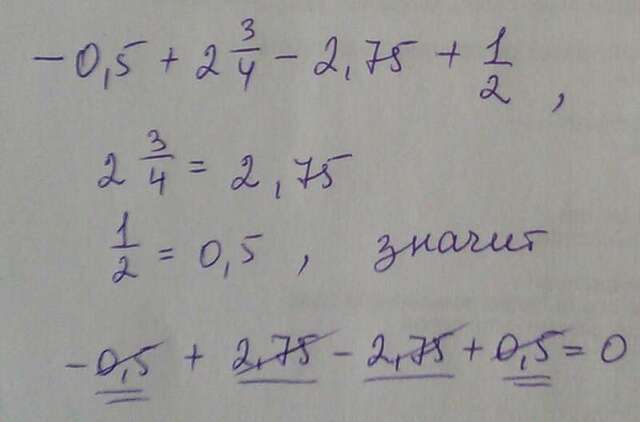 -0,5 + 2 3/4 - 2,75 + 1/2 ,
2 3/4 = 2,75
1/2 = 0,5 , значит
-0,5 + 2,75 - 2,75 + 0,5 = 0